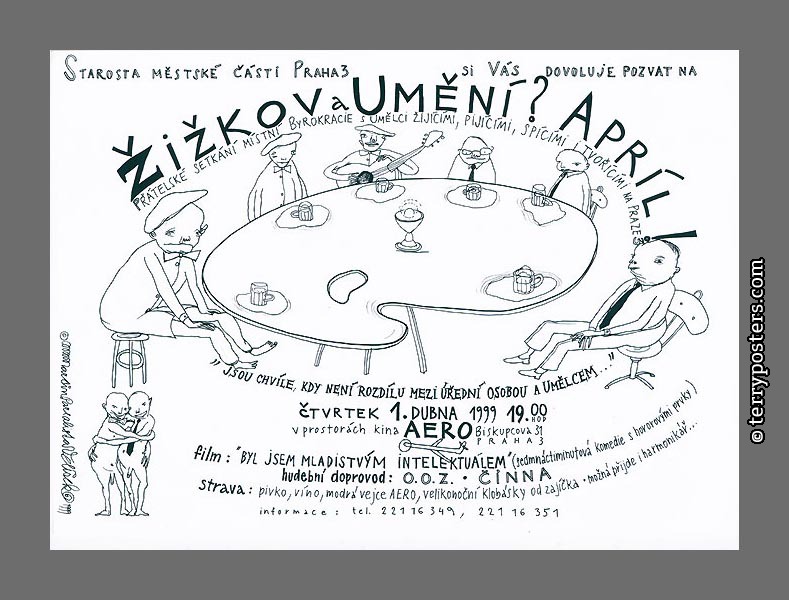 STAROSTA MĚSTSKÉ ČÁSTÍ PRAHA3 SI VÁS DOVOLUJE POZVAT NA
ŽIŽKOV a UMĚNÍ? APRÍL!
PŘÁTELSKÉ SETKÁNÍ MÍSTNÍ BYROKRACIE S UMĚLCI ŽIJÍCÍMI, PIJÍCÍMI, SPÍCÍMI I TVOŘÍCÍMI NA PRAZE 3
„JSOU CHVÍLE, KDY NENÍ ROZDÍLU MEZI ÚŘEDNÍ OSOBOU A UMĚLCEM..."
ČTVRTEK 1. DUBNA 1999 19.00 HOD
v prostorách kina AERO Biskupcova 31
PRAHA 3
film: "BYL JSEM MLADISTVÝM INTELEKTUÁLEM" (sedmnáctiminutová komedie s hororovými prvky)
hudební doprovod: O.O.Z. · ČÍNNA
strava: pivko, víno, modrá vejce AERO, velikonoční klobásky od zajíčka · možná přijde i harmonikář...
informace: tel. 22116349, 22116351
© terryposters.com